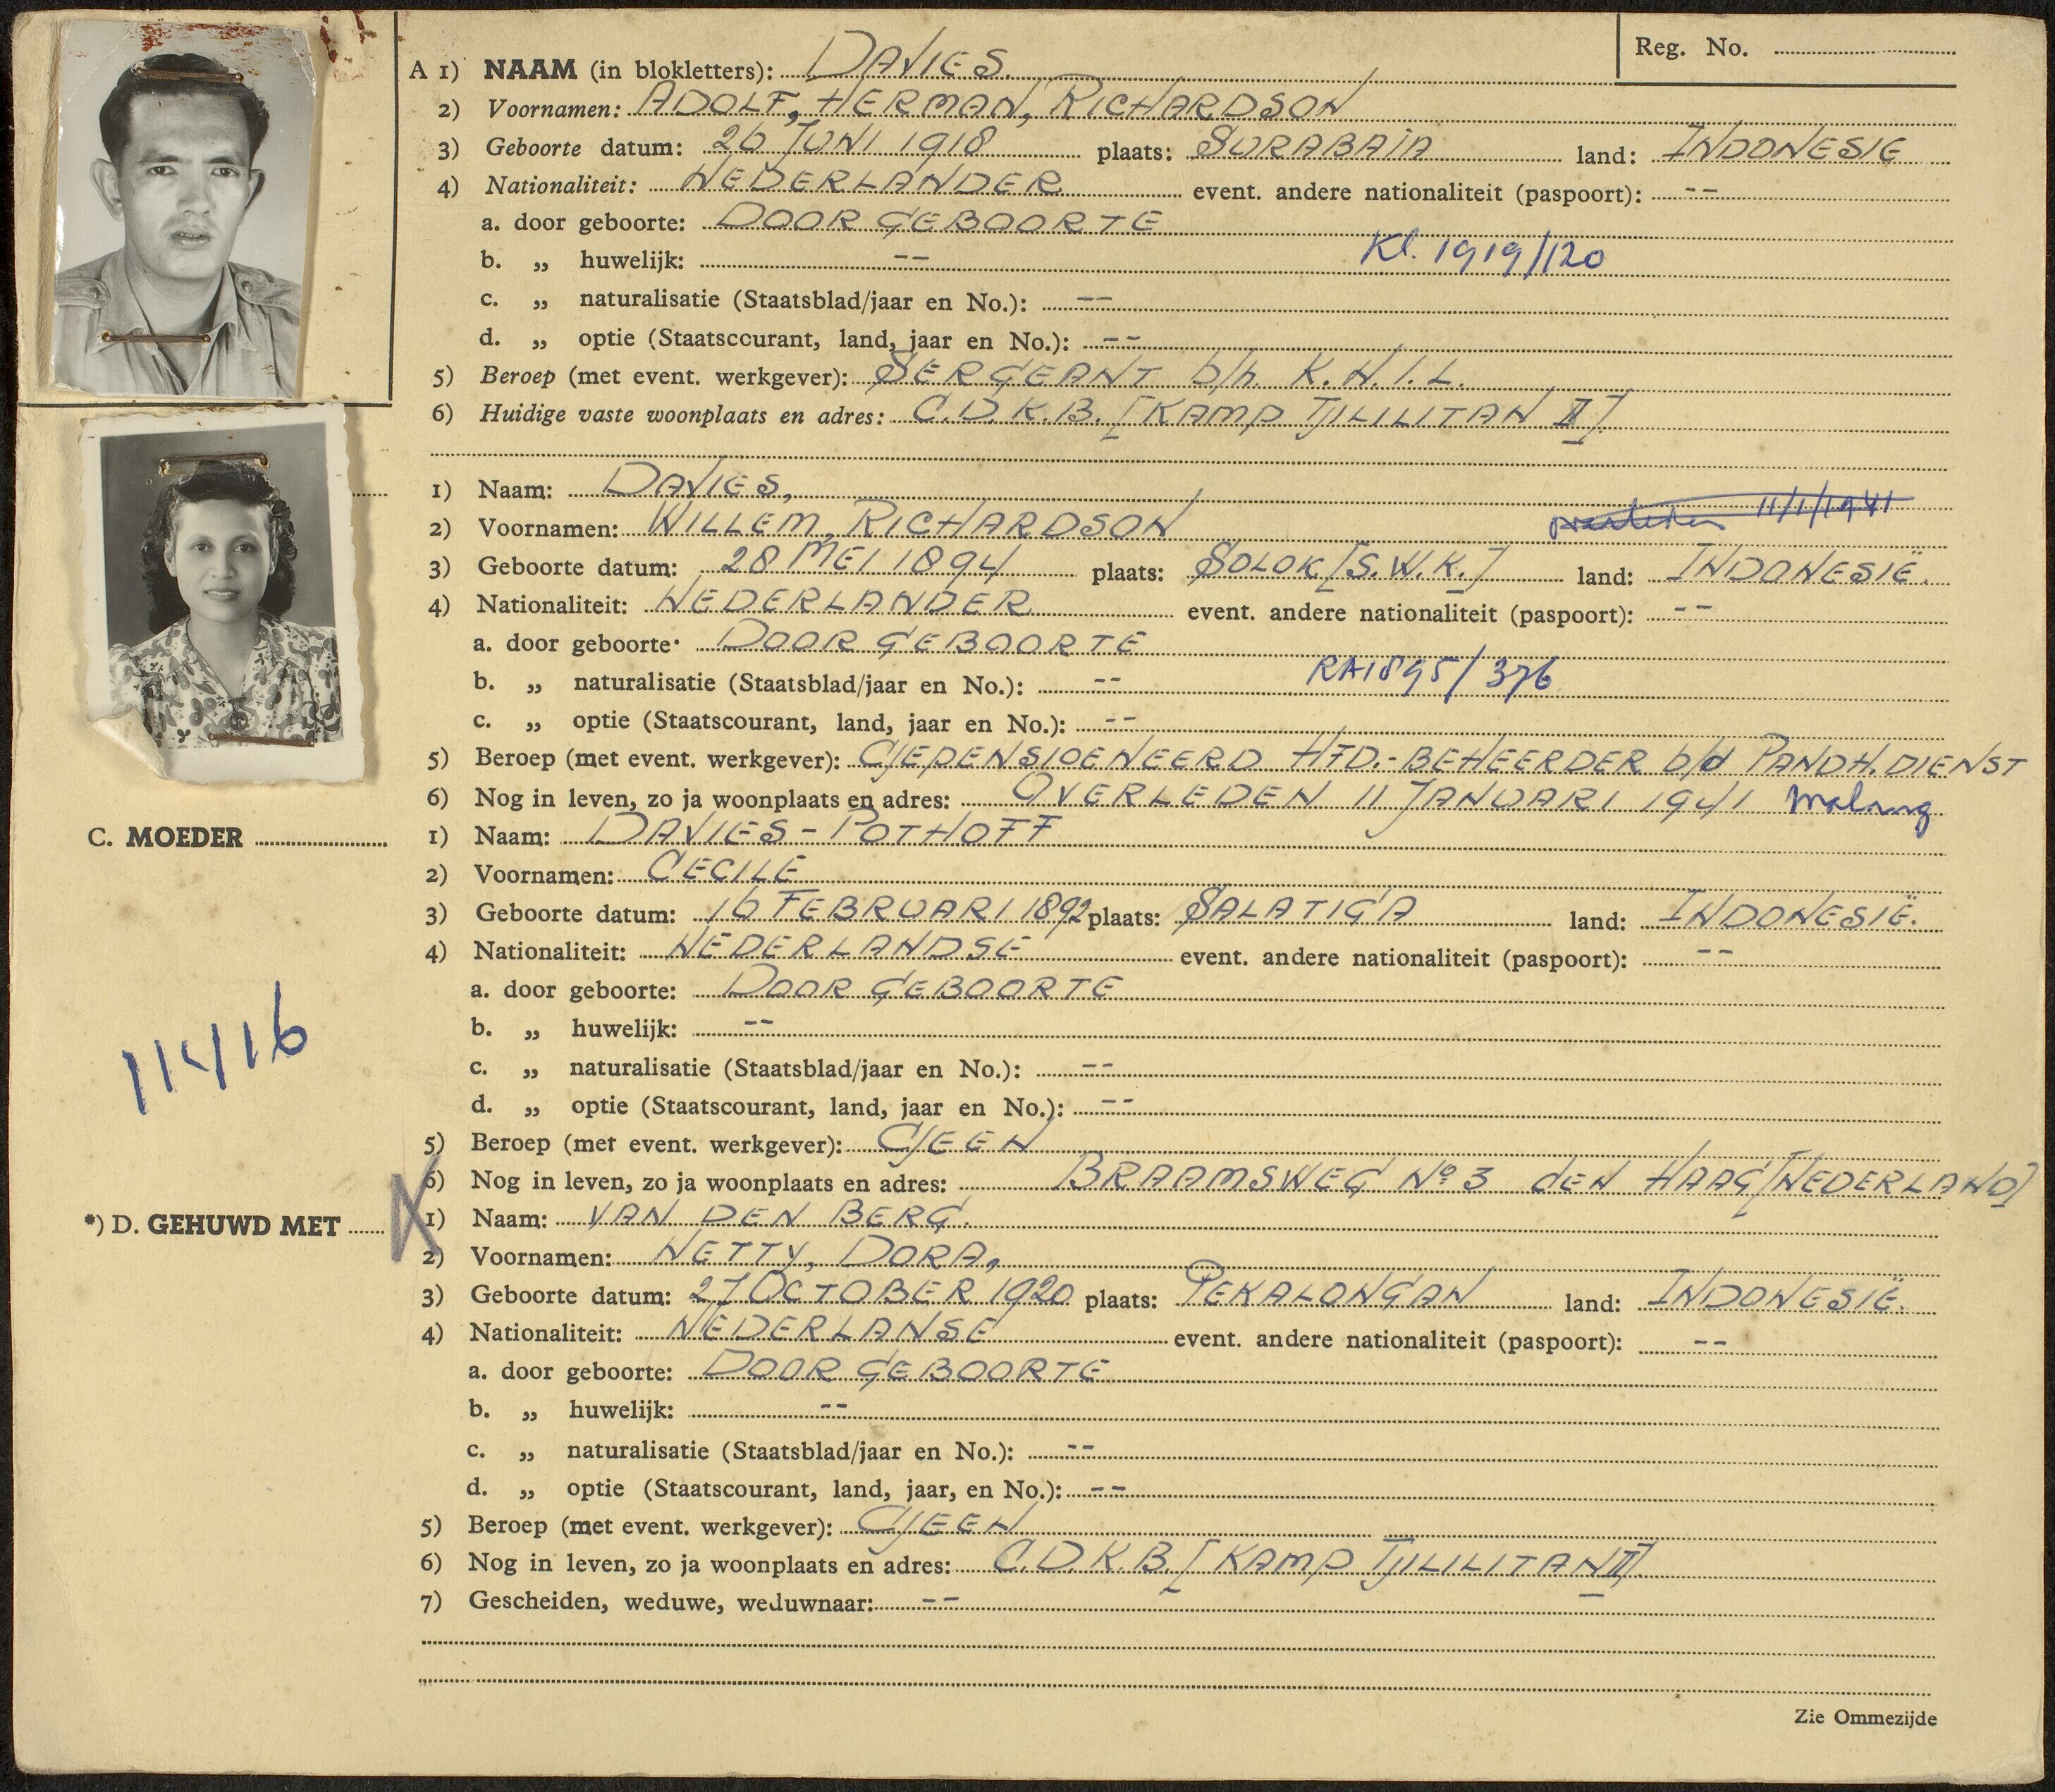 Reg. No.
A 1) NAAM (in blokletters): DAVIES.
2) Voornamen: ADOLF, HERMAN, RICHARDSON
3) Geboorte datum: 26 JUNI 1918 plaats: SURABAIA land: INDONESIË
4) Nationaliteit: NEDERLANDER event. andere nationaliteit (paspoort): --
a. door geboorte: DOOR GEBOORTE
b. „ huwelijk: -- Kl. 1919/120
c. „ naturalisatie (Staatsblad/jaar en No.): --
d. „ optie (Staatsccurant, land, jaar en No.): --
5) Beroep (met event. werkgever): SERGEANT b/h. K.N.I.L.
6) Huidige vaste woonplaats en adres: C.D.K.B. [KAMP TJILILITAN II]
1) Naam: DAVIES,
2) Voornamen: WILLEM, RICHARDSON overleden 11/1/1941
3) Geboorte datum: 28 MEI 1894 plaats: SOLOK [S.W.K.] land: INDONESIË.
4) Nationaliteit: NEDERLANDER event. andere nationaliteit (paspoort): --
a. door geboorte: DOOR GEBOORTE
b. „ naturalisatie (Staatsblad/jaar en No.): -- RA1895/376
c. „ optie (Staatscourant, land, jaar en No.): --
5) Beroep (met event. werkgever): GEPENSIOENEERD HFD.-BEHEERDER b/d PANDH. DIENST
6) Nog in leven, zo ja woonplaats en adres: OVERLEDEN 11 JANUARI 1941 Malang
C. MOEDER
1) Naam: DAVIES-POTHOFF
2) Voornamen: CECILE
3) Geboorte datum: 16 FEBRUARI 1892 plaats: SALATIGA land: INDONESIË.
4) Nationaliteit: NEDERLANDSE event. andere nationaliteit (paspoort): --
a. door geboorte: DOOR GEBOORTE
b. „ huwelijk: --
c. „ naturalisatie (Staatsblad/jaar en No.): --
d. „ optie (Staatscourant, land, jaar en No.): --
11416
5) Beroep (met event. werkgever): GEEN
6) Nog in leven, zo ja woonplaats en adres: BRAAMSWEG Nº 3 dEN HAAG [NEDERLAND]
*) D. GEHUWD MET
1) Naam: VAN DEN BERG.
2) Voornamen: NETTY, DORA,
3) Geboorte datum: 27 OCTOBER 1920 plaats: PEKALONGAN land: INDONESIË.
4) Nationaliteit: NEDERLANSE event. andere nationaliteit (paspoort): --
a. door geboorte: DOOR GEBOORTE
b. „ huwelijk: --
c. „ naturalisatie (Staatsblad/jaar en No.): --
d. „ optie (Staatscourant, land, jaar, en No.): --
5) Beroep (met event. werkgever): GEEN
6) Nog in leven, zo ja woonplaats en adres: C.D.K.B. [KAMP TJILILITAN II]
7) Gescheiden, weduwe, weduwnaar: --
Zie Ommezijde